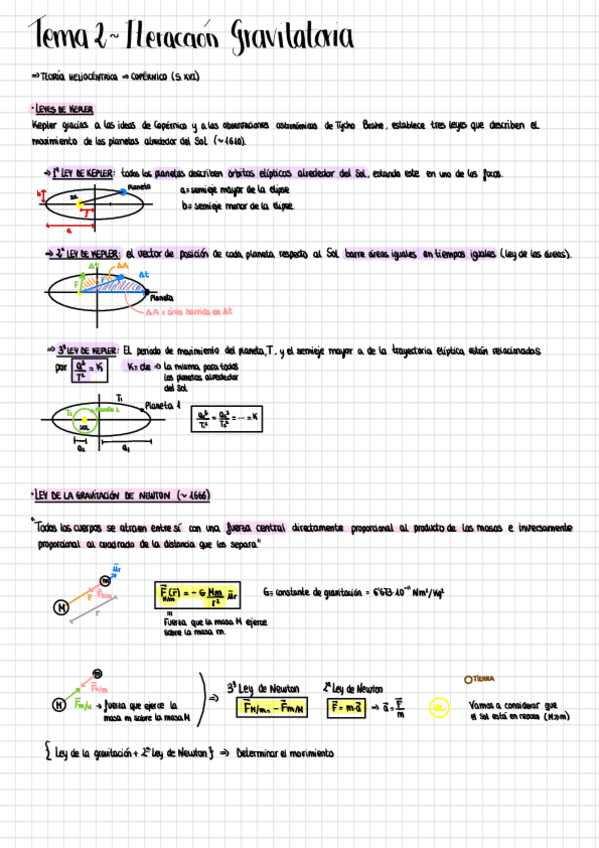 Tema 2 ~ Iteracción Gravitatoria
⇒ TEORÍA HELIOCÉNTRICA → COPÉRNICO (S. XVI)
· LEYES DE KEPLER
Kepler gracias a las ideas de Copérnico y a las observaciones astronómicas de Tycho Brahe, establece tres leyes que describen el
movimiento de los planetas alrededor del Sol (~1610).
→ 1ª LEY DE KEPLER: todos los planetas describen órbitas elípticas alrededor del Sol, estando este en uno de los focos.
Planeta
SOL
b
r
a
a = semieje mayor de la elipse
b = semieje menor de la elipse.
→ 2ª LEY DE KEPLER: el vector de posición de cada planeta respecto al Sol barre áreas iguales en tiempos iguales (ley de las áreas).
Δt
ΔA
Δt
r
r
Planeta
ΔA = área barrida en Δt
→ 3ª LEY DE KEPLER: El periodo de movimiento del planeta, T, y el semieje mayor a de la trayectoria elíptica están relacionados
por a³/T² = K
K = cte → la misma para todos
los planetas alrededor
del Sol
T₁
T₂
Planeta 2
Planeta 1
SOL
a₂
a₁
a₁³/T₁² = a₂³/T₂² = ... = K
· LEY DE LA GRAVITACIÓN DE NEWTON (~ 1666)
"Todos los cuerpos se atraen entre sí con una fuerza central directamente proporcional al producto de las masas e inversamente
proporcional al cuadrado de la distancia que los separa."
M
m
ûr
F M/m
r
r
F M/m (r) = - G Mm/r² ûr
G = constante de gravitación = 6'673·10⁻¹¹ Nm²/Kg²
Fuerza que la masa M ejerce
sobre la masa m.
m
F M/m
M
F m/M → fuerza que ejerce la
masa m sobre la masa M
⇒ 3ª Ley de Newton
F M/m = - F m/M
2ª Ley de Newton
F = m·a → a = F/m
SOL
TIERRA
Vamos a considerar que
el Sol está en reposo (M≫m)
{ Ley de la gravitación + 2ª Ley de Newton } ⇒ Determinar el movimiento